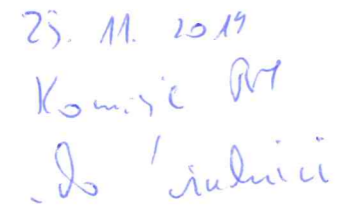 25. 11. 2019
Komisje RM
do